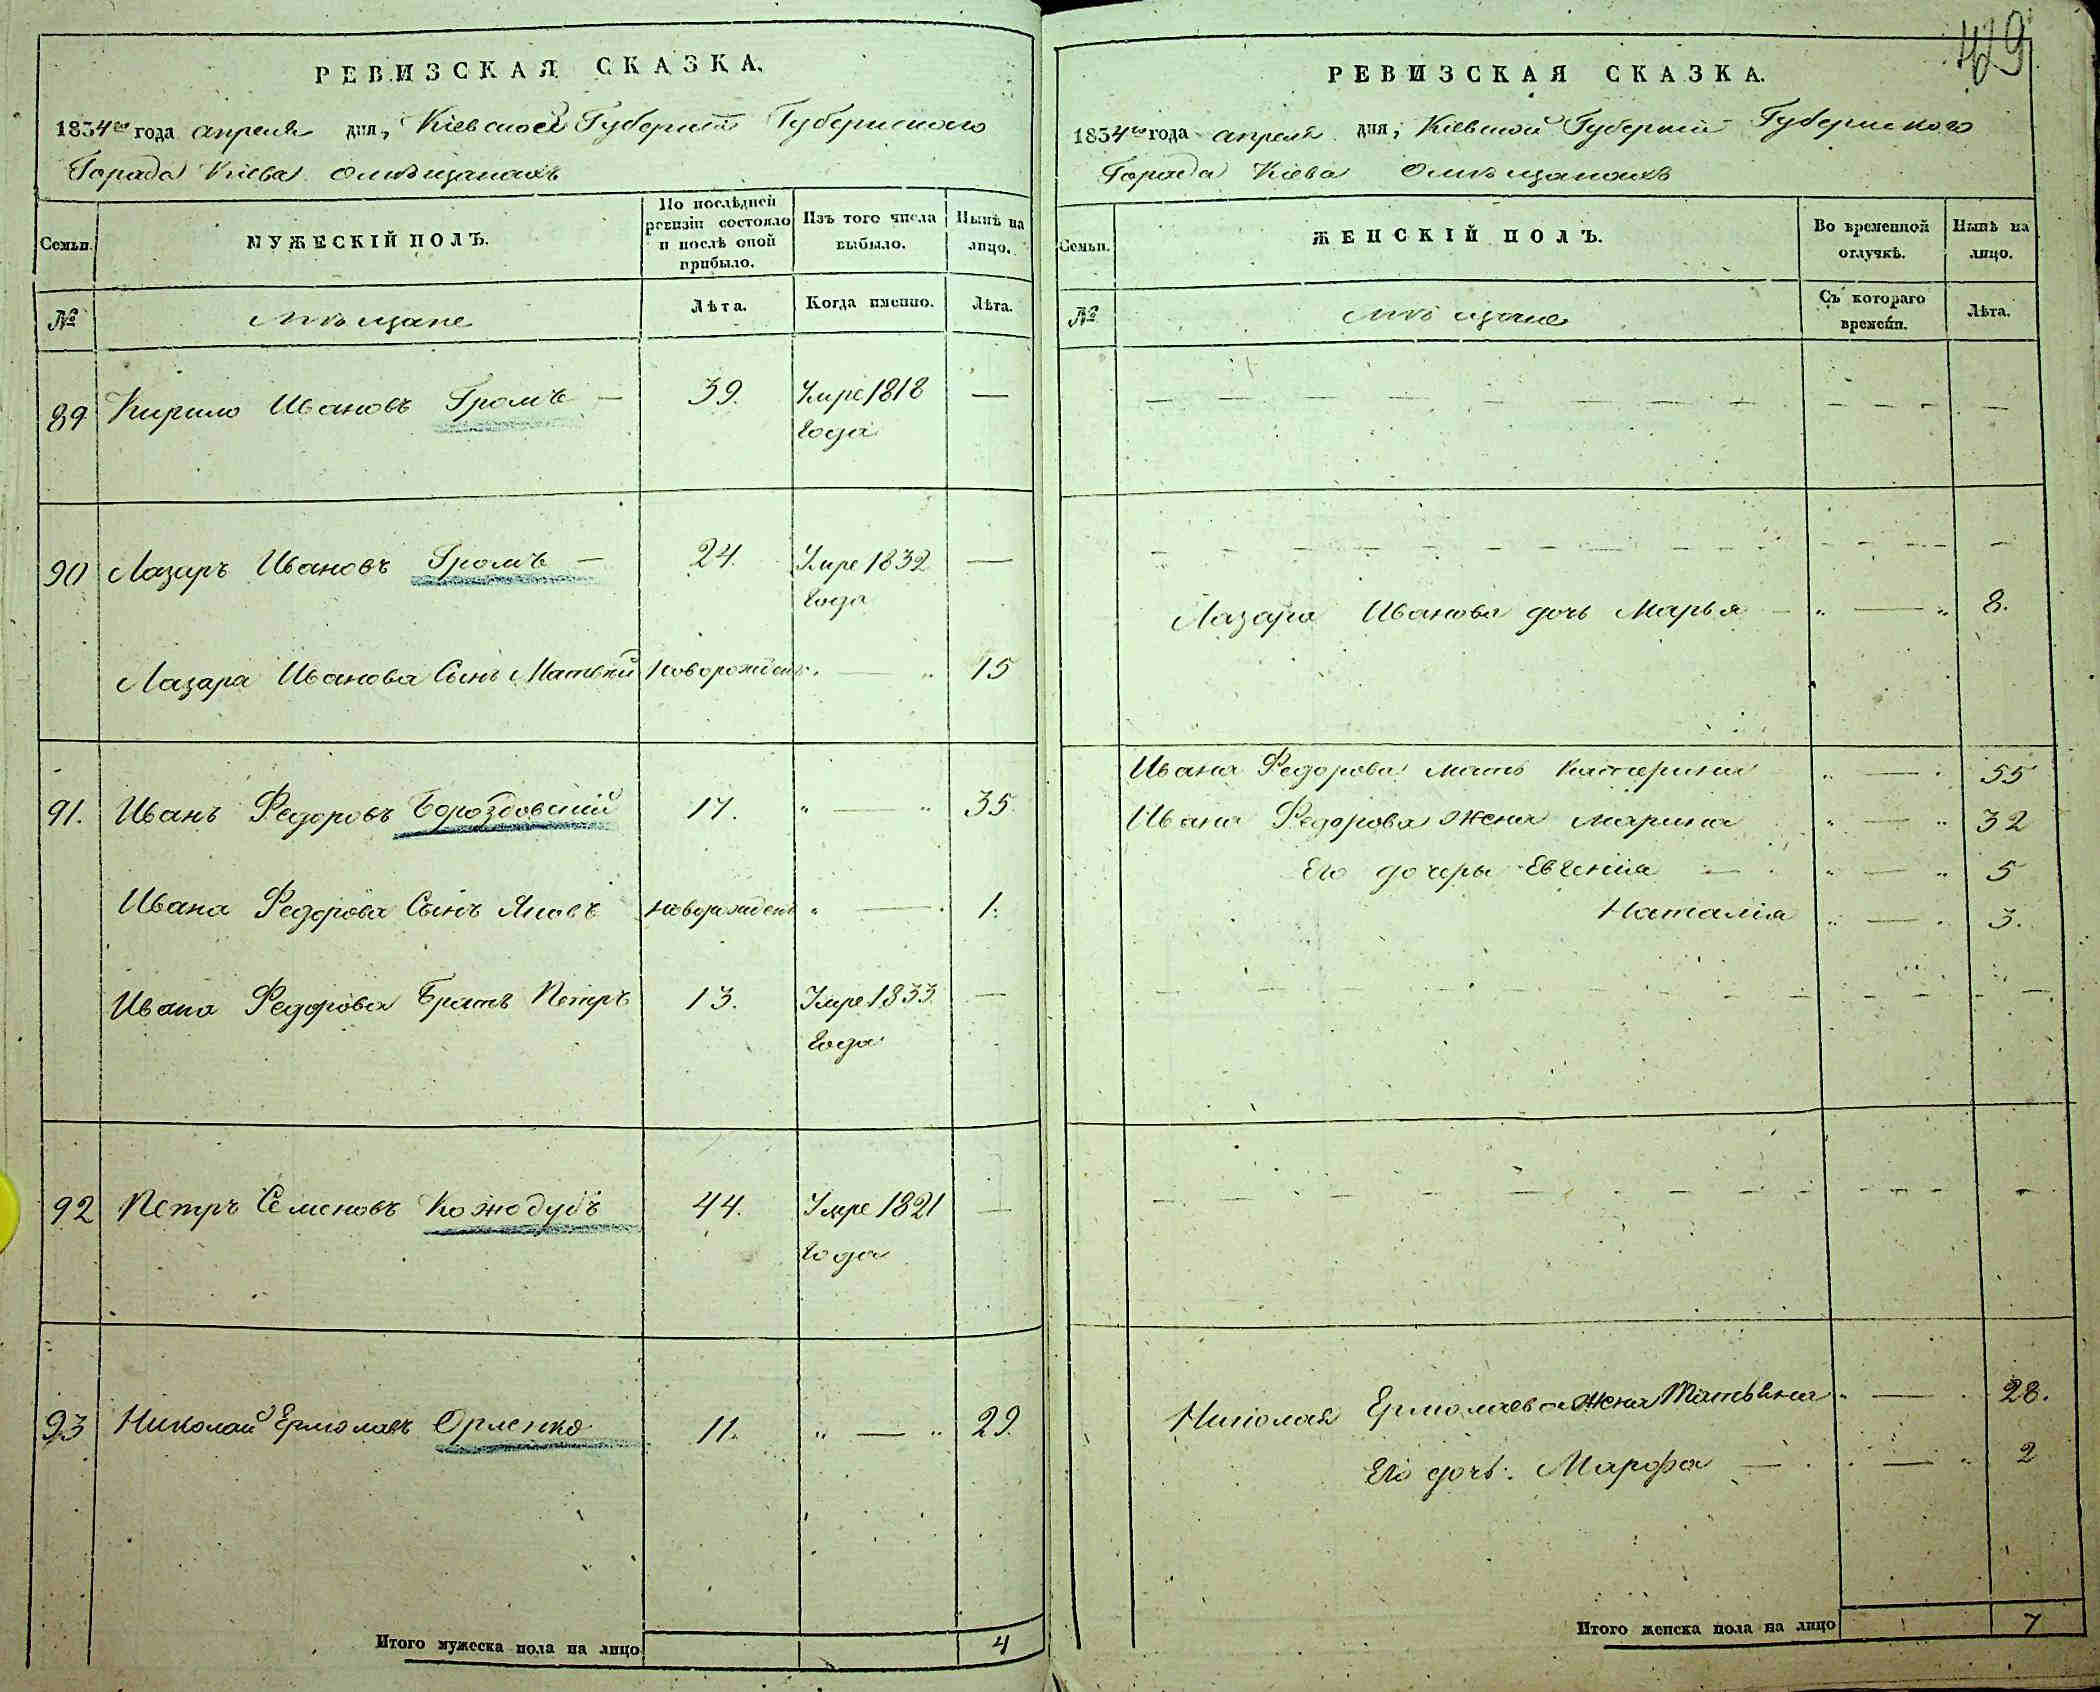 РЕВИЗСКАЯ СКАЗКА.
1834го года апреля дня, Кіевской Губерніи Губернского
Города Кіева О мѣщанахъ
Семьи.
МУЖЕСКІЙ ПОЛЪ.
По послѣдней ревизіи состояло и послѣ оной прибыло.
Изъ того числа выбыло.
Нынѣ на лицо.
№
Мѣщане
Лѣта.
Когда именно.
Лѣта.
89 Кирило Ивановъ Громъ — 39. Умре 1818 —
года
90 Лазаръ Ивановъ Громъ — 24. Умре 1832 —
года
Лазара Иванова Сынъ Матвей Новорожден „ — „ 15
91. Иванъ Федоровъ Бороздовский 17. „ — „ 35
Ивана Федорова Сынъ Яковъ новорожден „ — . 1.
Ивана Федорова Братъ Петръ 13. Умре 1833 —
года
92 Петръ Семеновъ Кожодубъ 44. Умре 1821 —
года
93 Николай Ермолаевъ Орленко 11. „ — „ 29.
Итого мужеска пола на лицо 4
429
РЕВИЗСКАЯ СКАЗКА.
1834го года апреля дня, Кіевской Губерніи Губернского
Города Кіева О мѣщанахъ
Семьи.
ЖЕНСКІЙ ПОЛЪ.
Во временной отлучкѣ.
Нынѣ на лицо.
№
Мѣщане
Съ котораго времени.
Лѣта.
Лазара Иванова дочь Марья — „ — „ 8.
Ивана Федорова мать Катерина „ — . 55
Ивана Федорова жена Марина „ — „ 32
Его дочеры Евгения — „ — „ 5
Наталія „ — . 3.
Николая Ермолаева жена Татьяна „ — . 28.
Его дочь. Марфа — . — „ 2
Итого женска пола на лицо 7